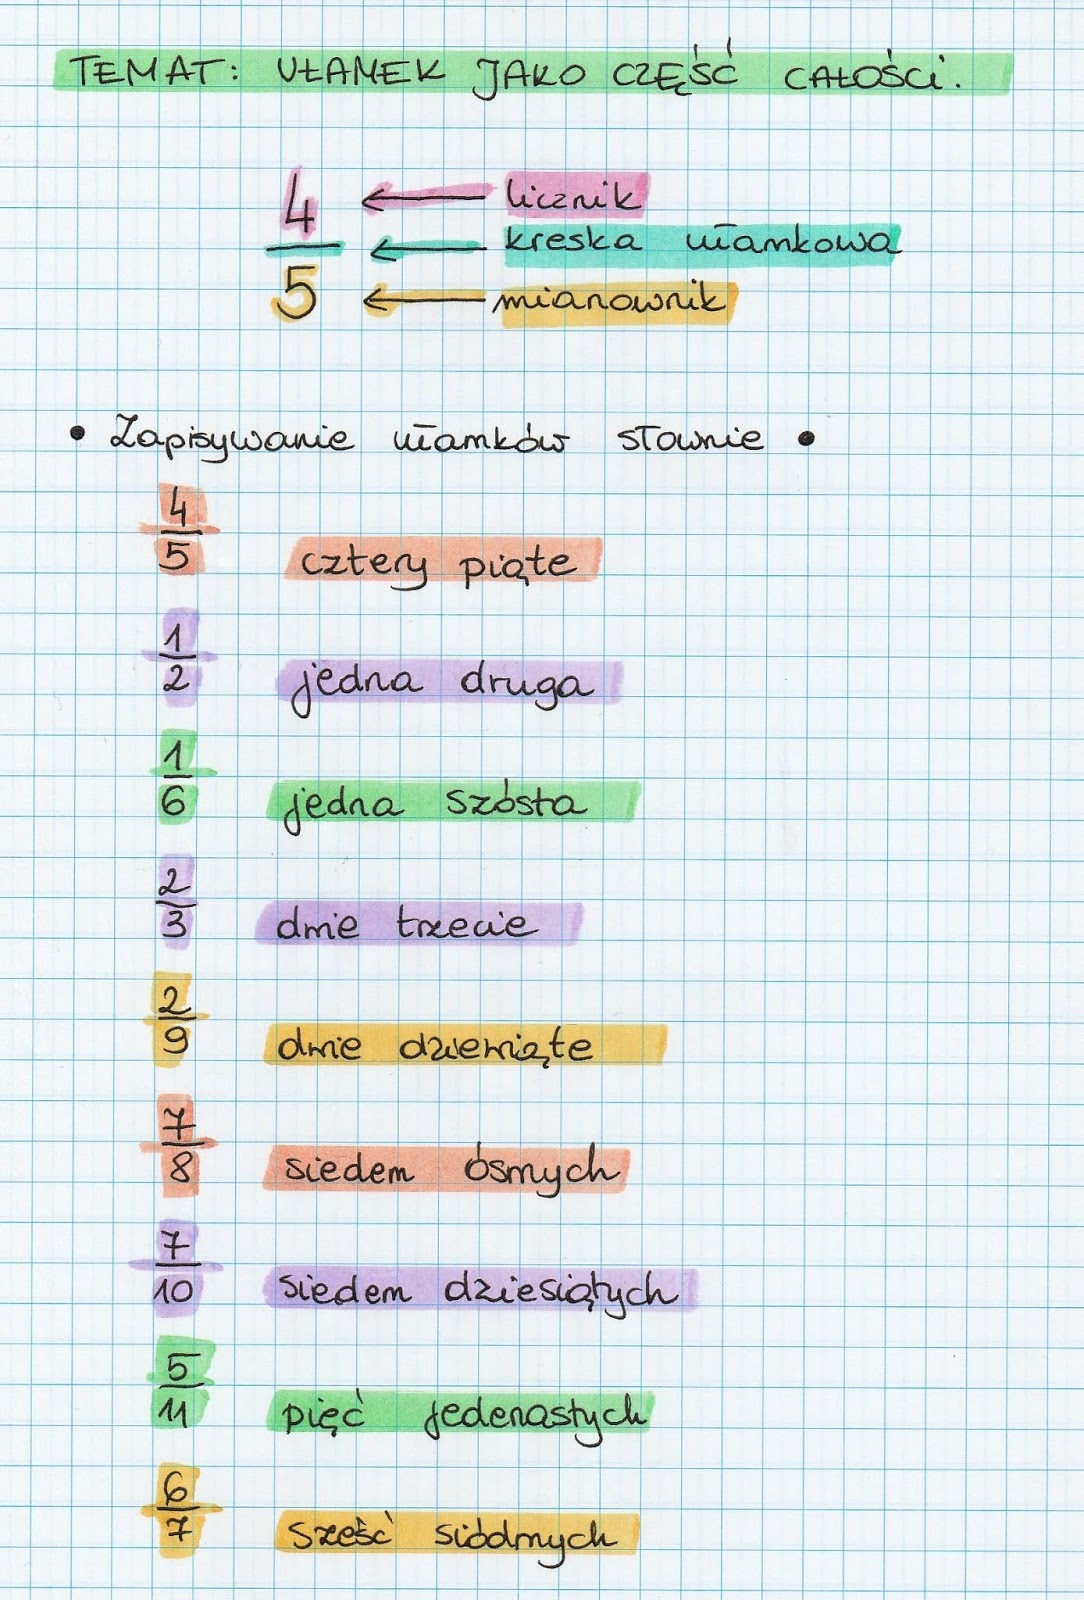 TEMAT: UŁAMEK JAKO CZĘŚĆ CAŁOŚCI.
4 ← licznik
← kreska ułamkowa
5 ← mianownik
• Zapisywanie ułamków słownie •
4/5 cztery piąte
1/2 jedna druga
1/6 jedna szósta
2/3 dwie trzecie
2/9 dwie dziewiąte
7/8 siedem ósmych
7/10 siedem dziesiątych
5/11 pięć jedenastych
6/7 sześć siódmych